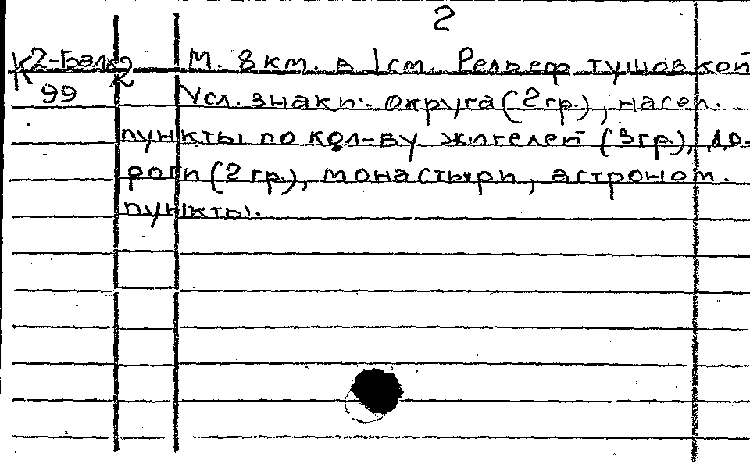 2
К 2-Балк 2 М. 8 км. в 1 см. Рельеф тушевкой
99 Усл. знаки: округа (2 гр.), насел.
пункты по кол-ву жителей (3 гр.), до-
роги (2 гр.), монастыри, астроном.
пункты.